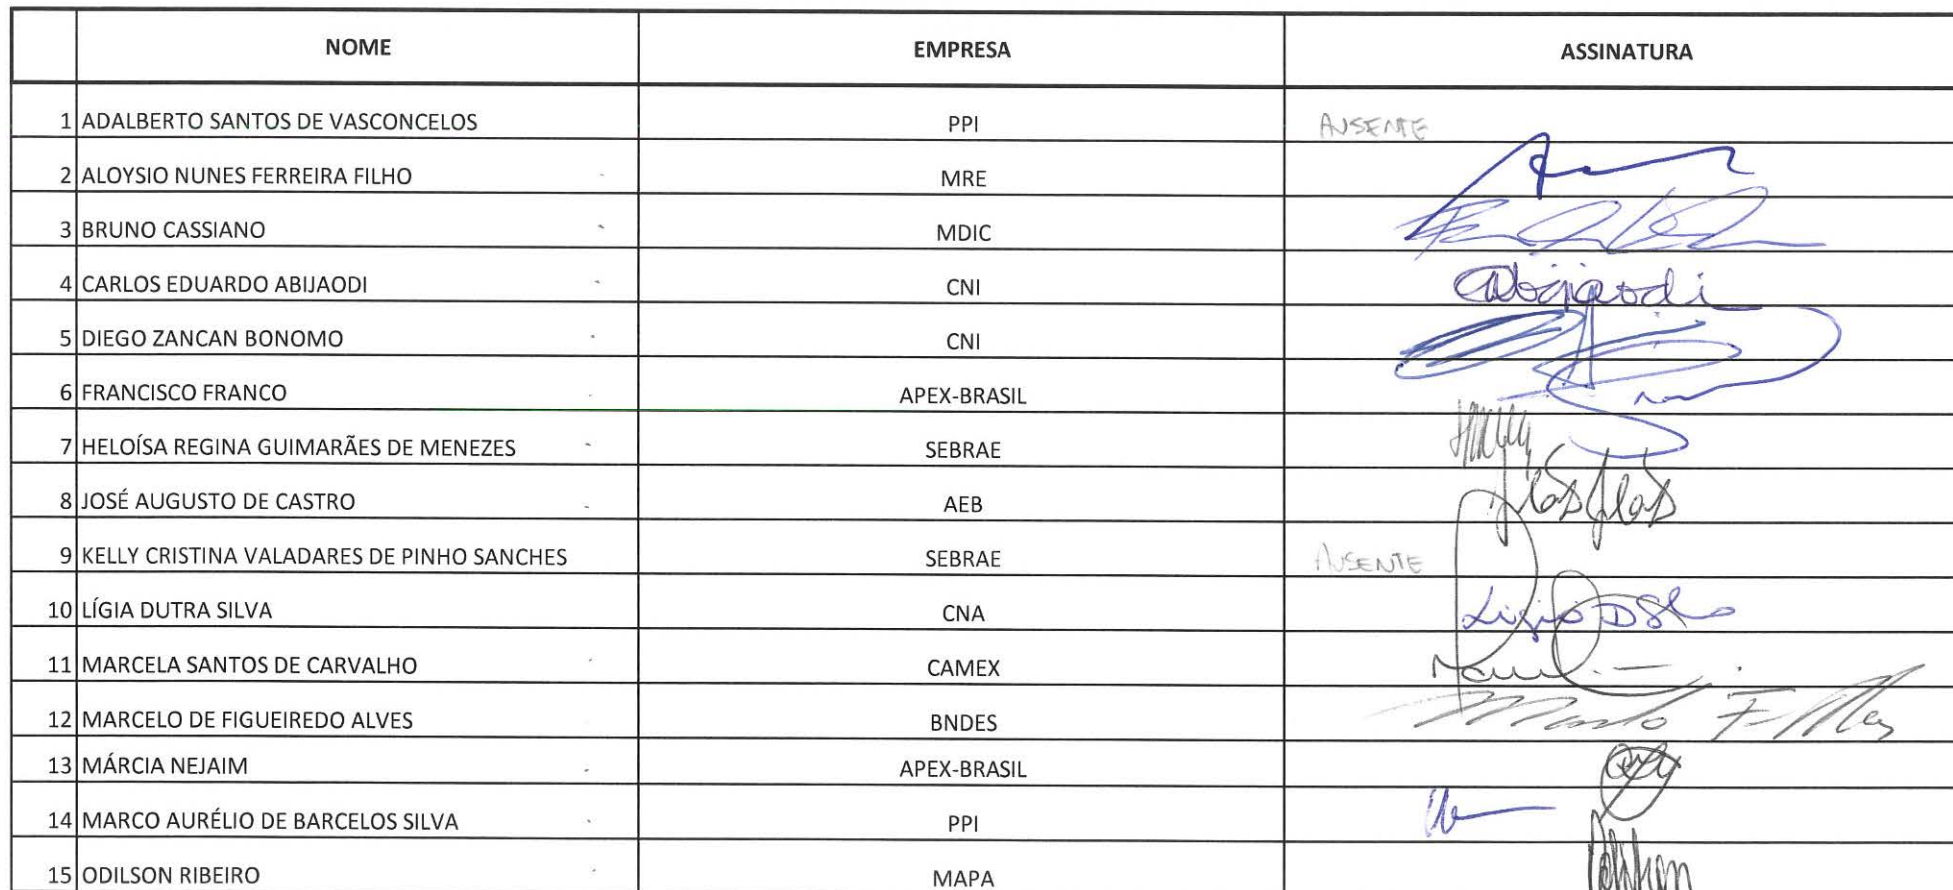 NOME EMPRESA ASSINATURA
1 ADALBERTO SANTOS DE VASCONCELOS PPI AUSENTE
2 ALOYSIO NUNES FERREIRA FILHO MRE
3 BRUNO CASSIANO MDIC
4 CARLOS EDUARDO ABIJAODI CNI Cabijaodi
5 DIEGO ZANCAN BONOMO CNI
6 FRANCISCO FRANCO APEX-BRASIL
7 HELOÍSA REGINA GUIMARÃES DE MENEZES SEBRAE
8 JOSÉ AUGUSTO DE CASTRO AEB
9 KELLY CRISTINA VALADARES DE PINHO SANCHES SEBRAE AUSENTE
10 LÍGIA DUTRA SILVA CNA Lígia
11 MARCELA SANTOS DE CARVALHO CAMEX
12 MARCELO DE FIGUEIREDO ALVES BNDES
13 MÁRCIA NEJAIM APEX-BRASIL
14 MARCO AURÉLIO DE BARCELOS SILVA PPI
15 ODILSON RIBEIRO MAPA